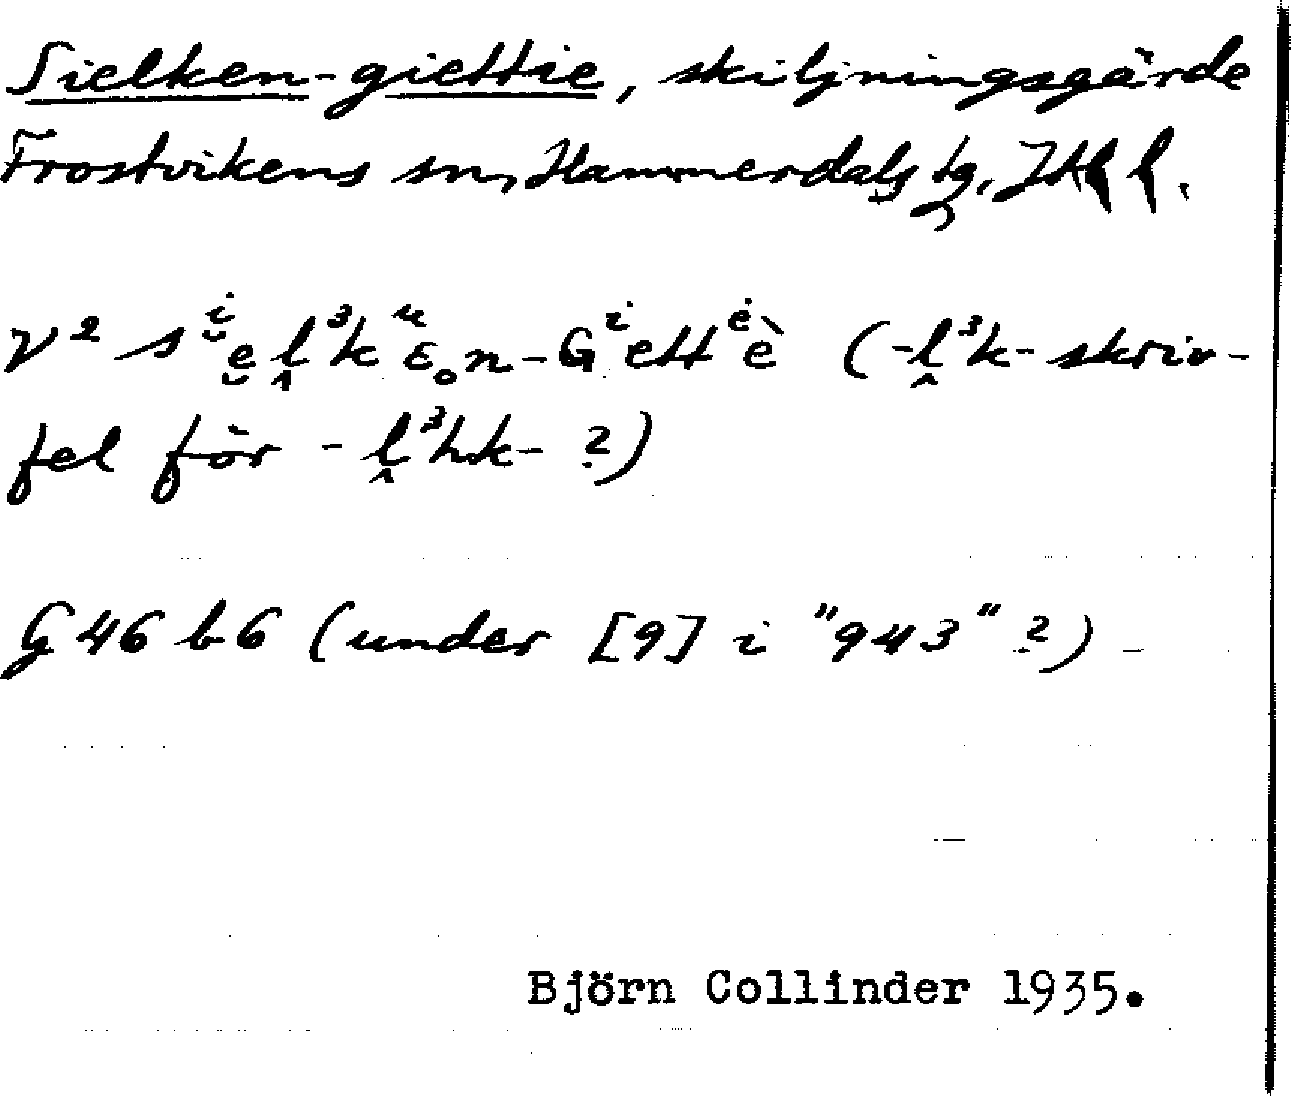 Sielken-giettie, skiljningsgärde
Frostvikens sn, Hammerdals tg, Jtl l.
V² sⁱ̯e̯ḽ³kᵘɛ̥n-Gⁱettᵉ̇è (-ḽ³k- skriv-
fel för -ḽ³hk- ?)
G 46 b 6 (under [9] i "943" ?)
Björn Collinder 1935.